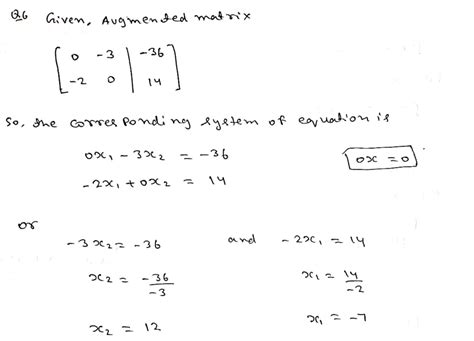 Q6 Given, Augmented matrix
[ 0 -3 | -36
-2 0 | 14 ]
So, the corresponding system of equation is
0x₁ - 3x₂ = -36
0x = 0
-2x₁ + 0x₂ = 14
or
-3x₂ = -36 and -2x₁ = 14
x₂ = -36/-3 x₁ = 14/-2
x₂ = 12 x₁ = -7